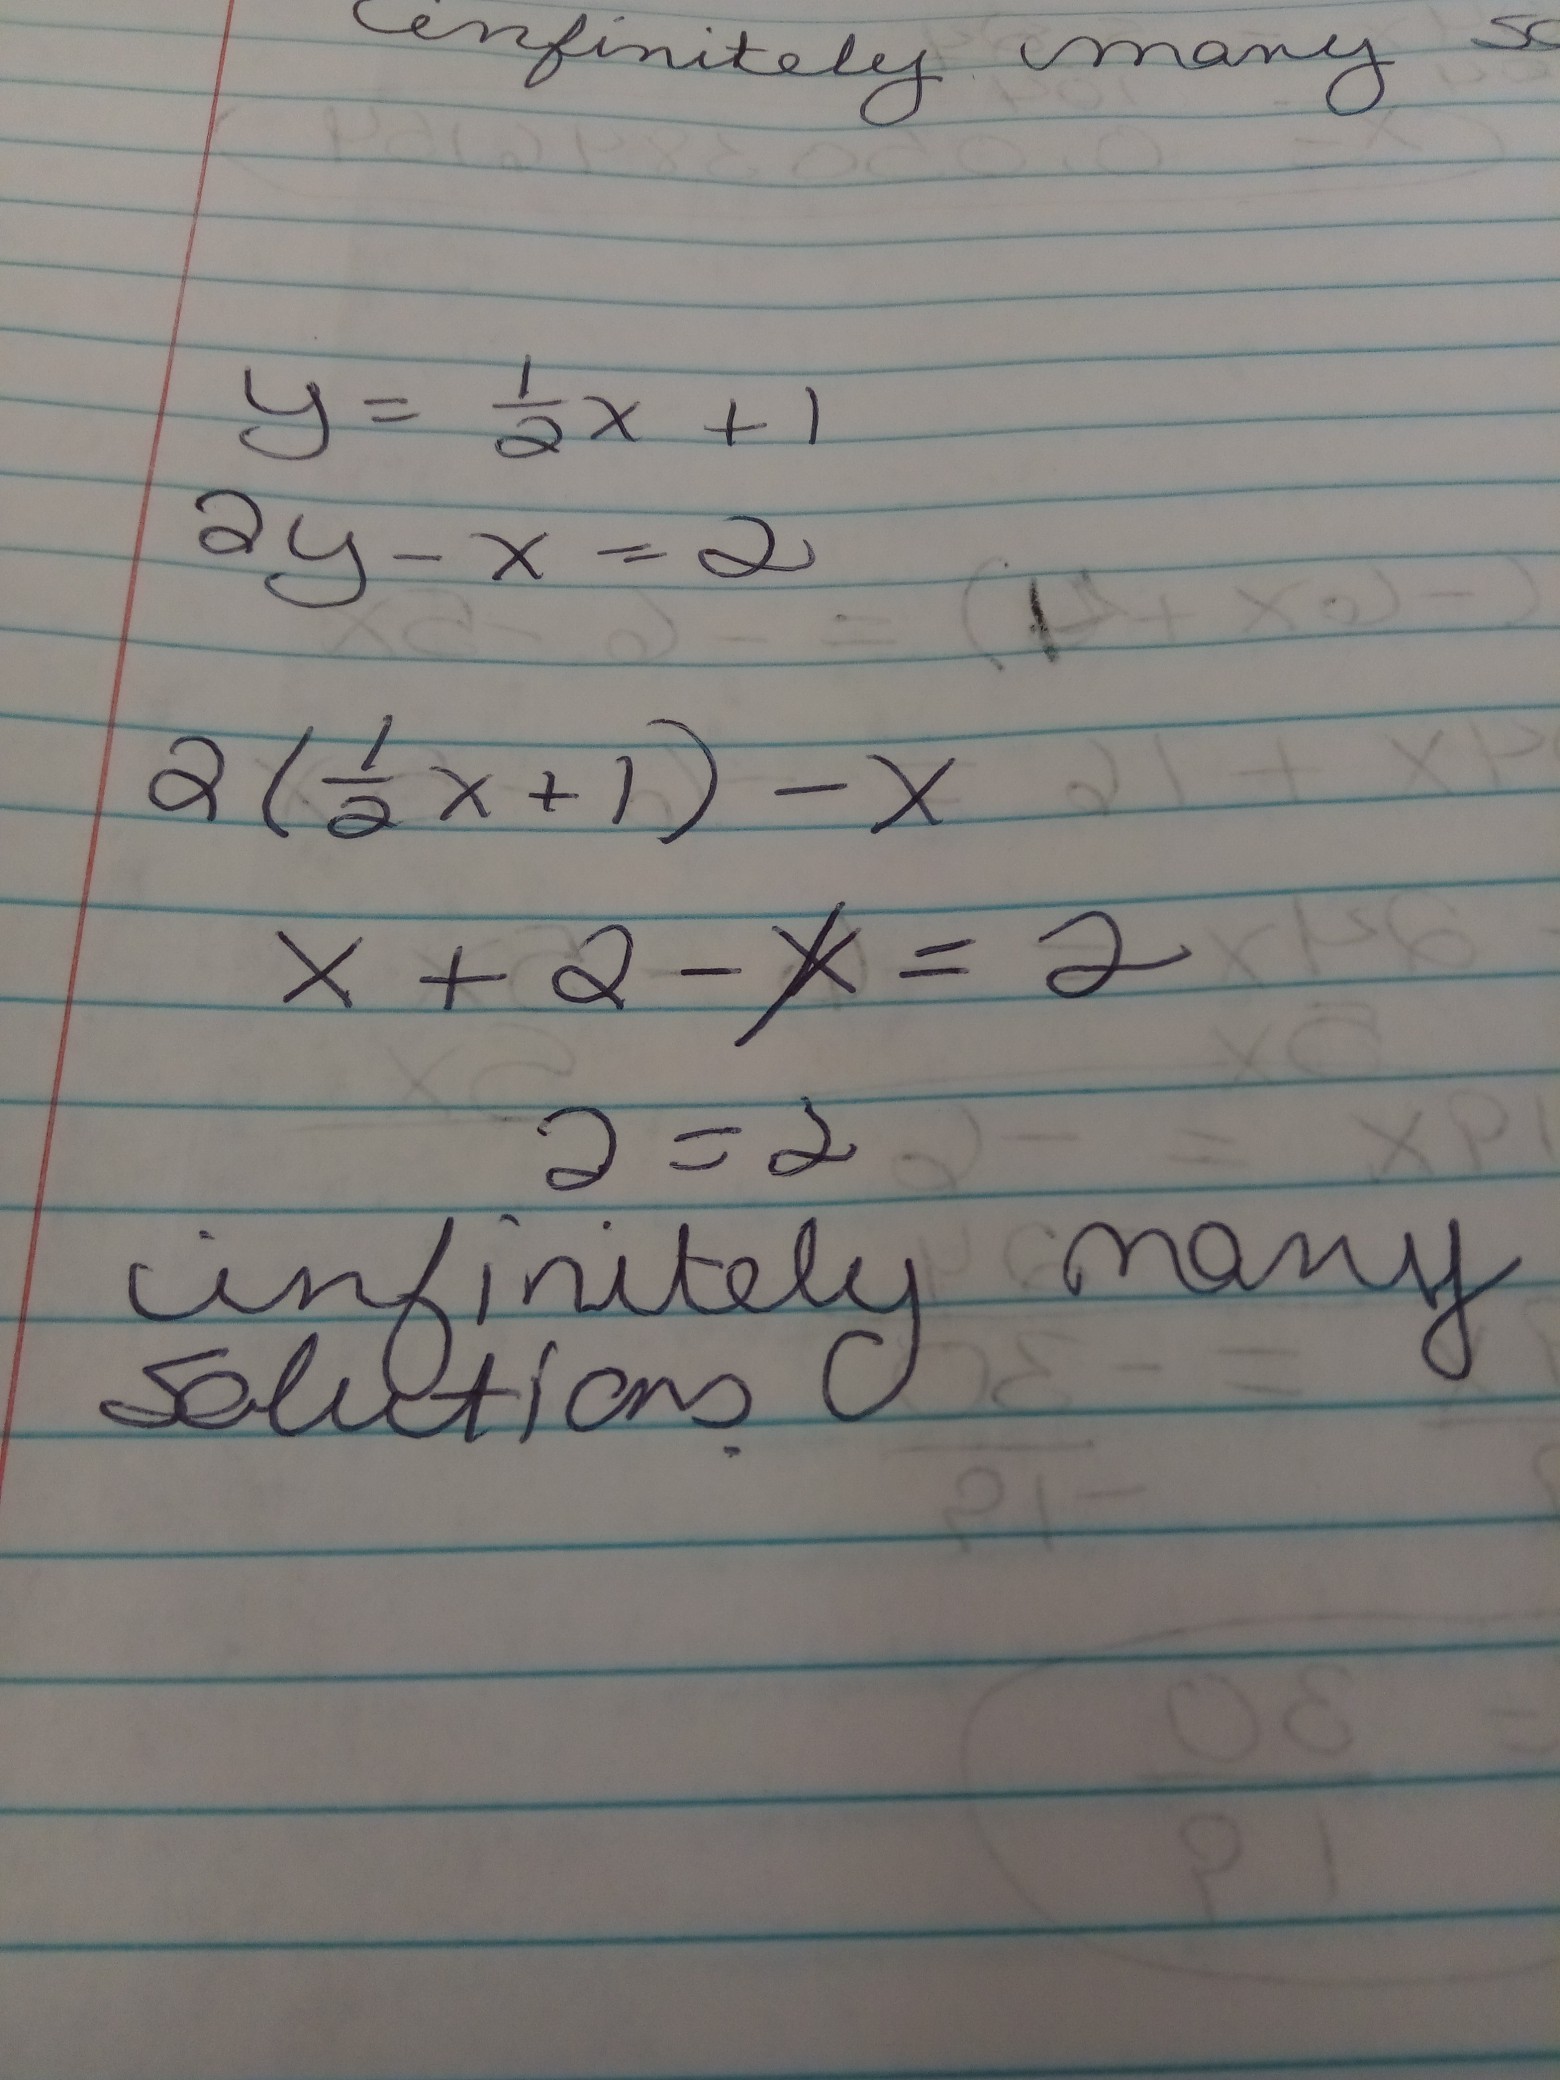 infinitely many
y = 1/2 x + 1
2y - x = 2
2(1/2 x + 1) - x
x + 2 - x = 2
2 = 2
infinitely many
solutions.